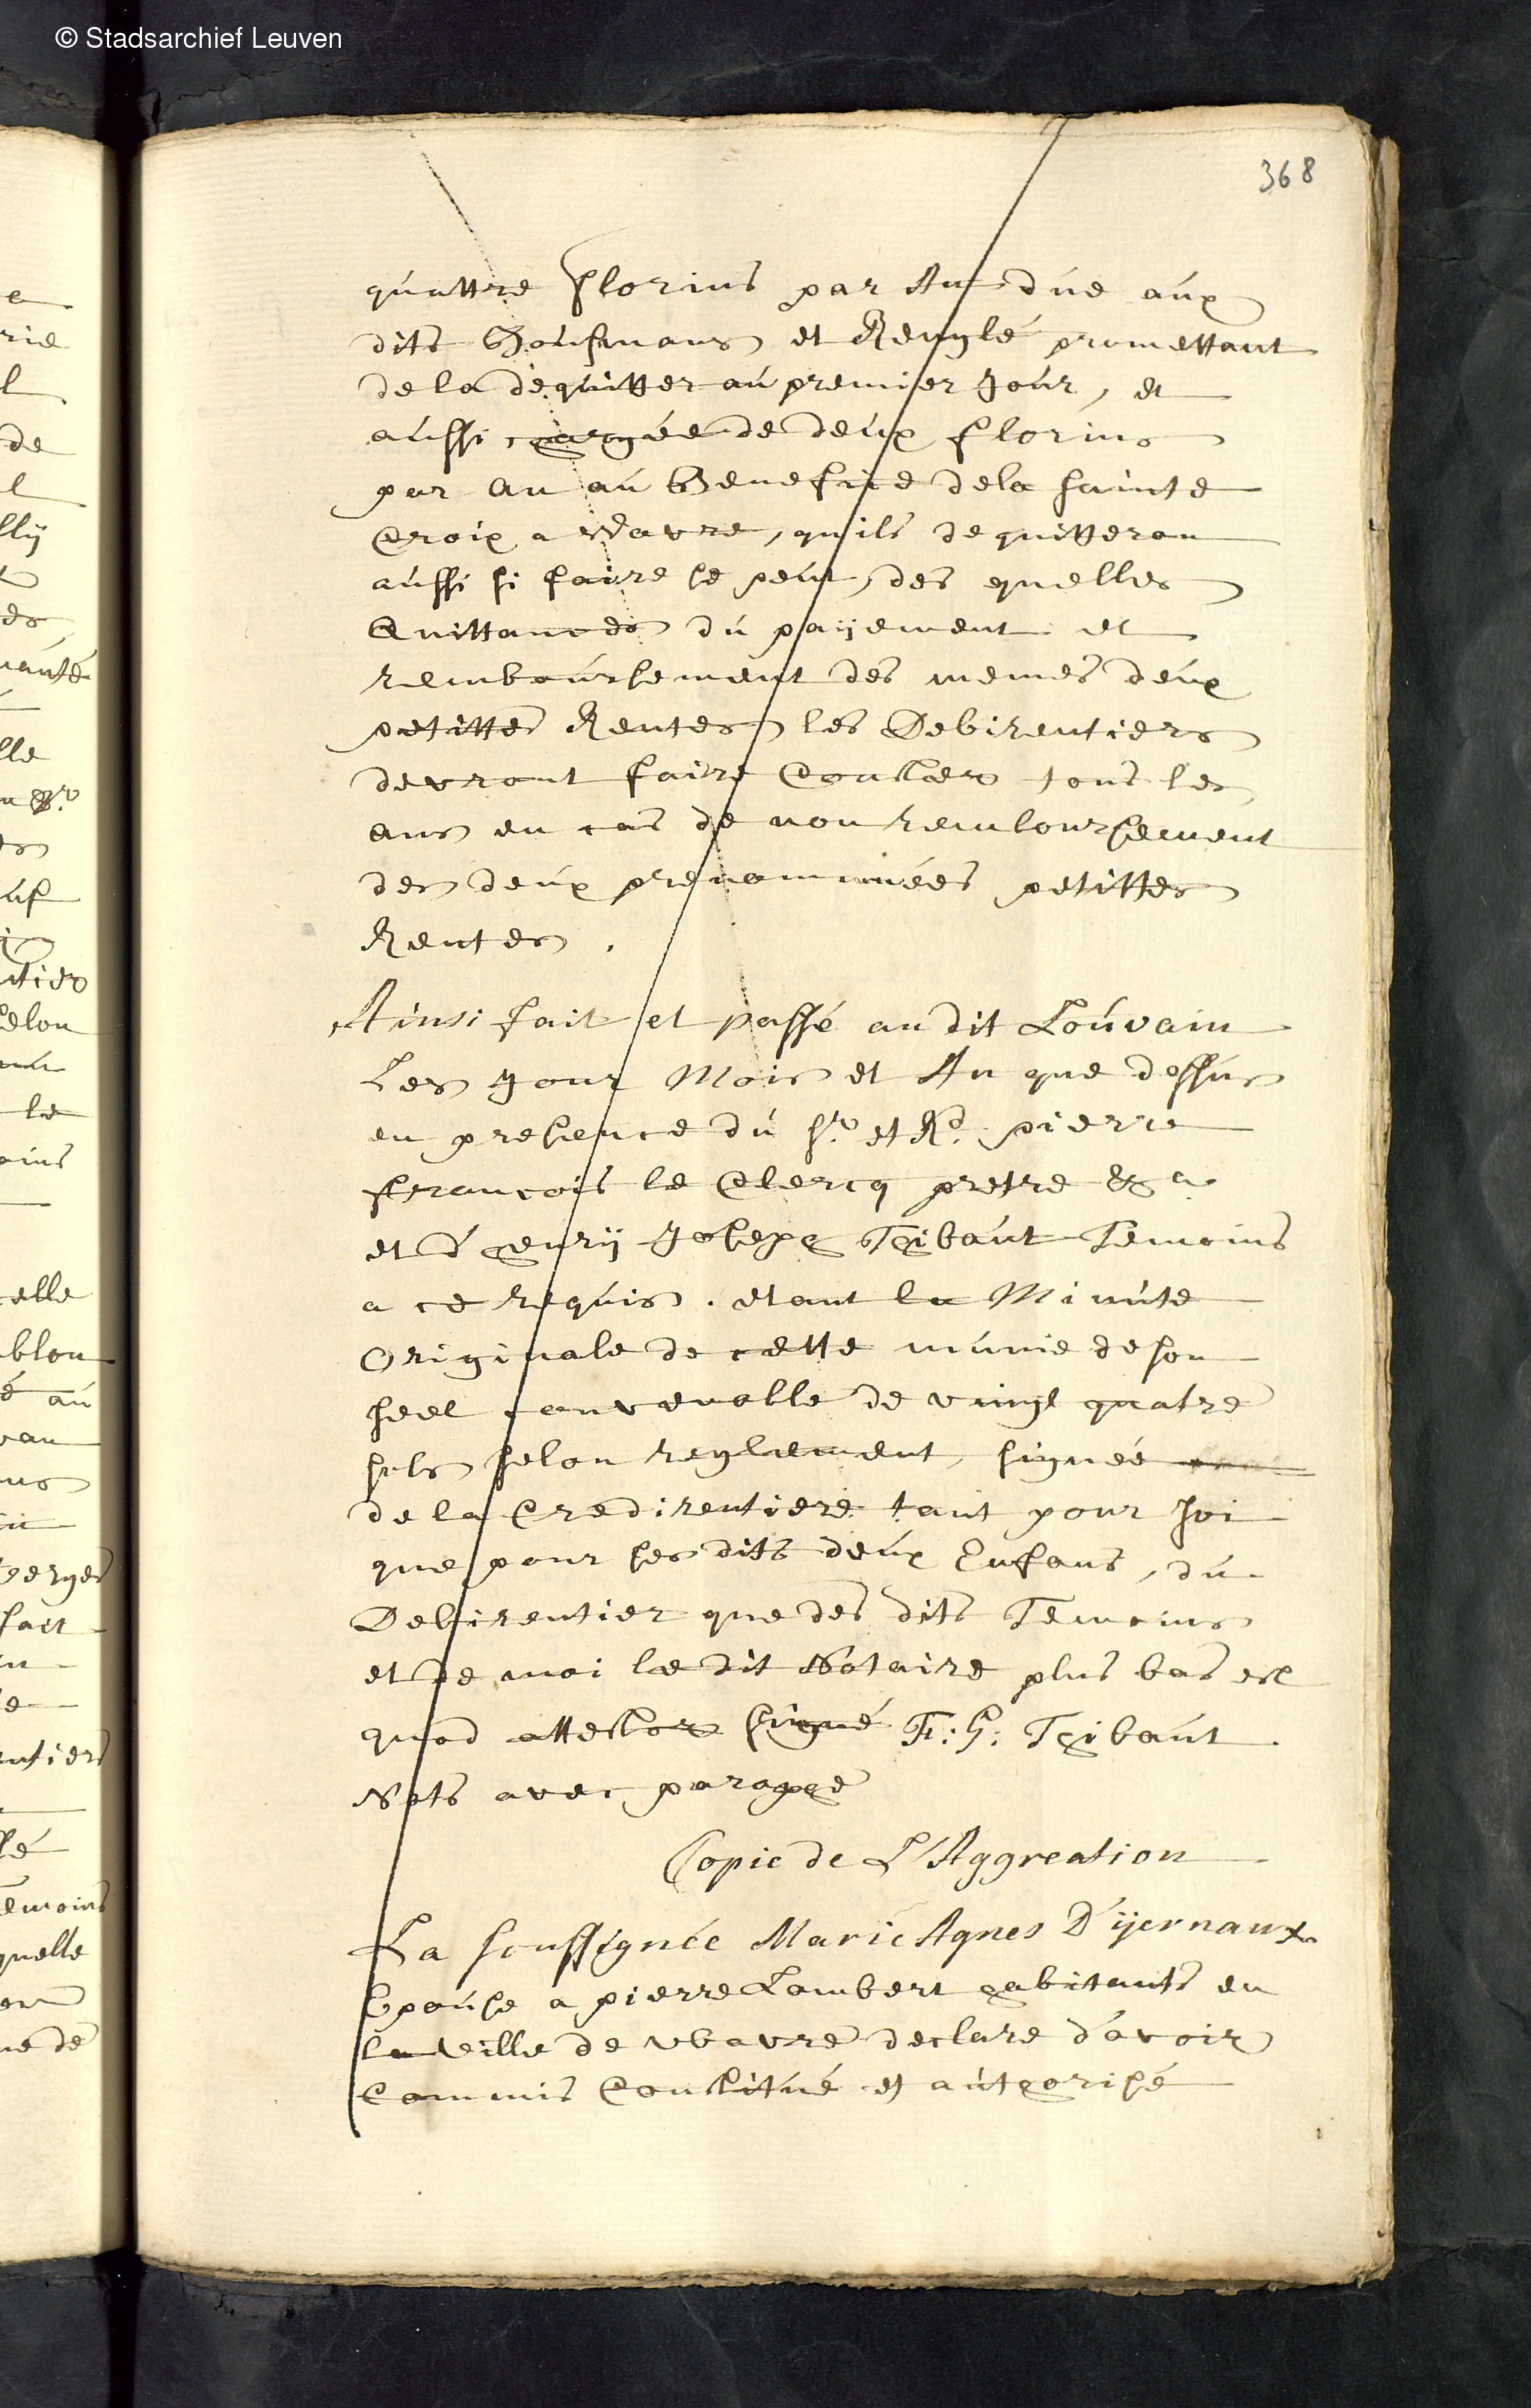 © Stadsarchief Leuven
368
quattre florins par An düe aúx
dits et Renglé promettant
de la dequitter aú premier Jour, et
aússi chargée de deúx florins
par An aú Benefice dela sainte
Croix a Wavre, quils dequitteron
aússi si faire se peut, des quelles
Quittances dú paijement et
remboúrsement des memes deúx
petittes Rentes les Debirentiers
devront faire Conster tous les
ans en cas de non remboursement
des deúx prenommées petittes
Rentes.
Ainsi fait et passé au dit Loúvain
Les Jour Mois et An que dessus
en presence dú Sr. et Rd. pierre
francois le Clercq pretre &a
et d'henrij Joseph Thibaút Temoins
a ce requis. etant la Minúte
Originale de cette múnie de son
seel convenable de vingt quatre
sols selon reglement, signée
de la Credirentiere tant pour soi
que pour ses dits deúx Enfans, dú
Debirentier que des dits Temoins
et de moi le dit Notaire plus bas est
quod attestor signé F: H: Thibaút
Nots avec paraphe
Copie de L'Aggreation
La soussignée Marie Agnes D'ijernaux
Epoúse a pierre Lambert habitants en
la Ville de Wavre declare d'avoir
Commis Constitué et aúthorisé